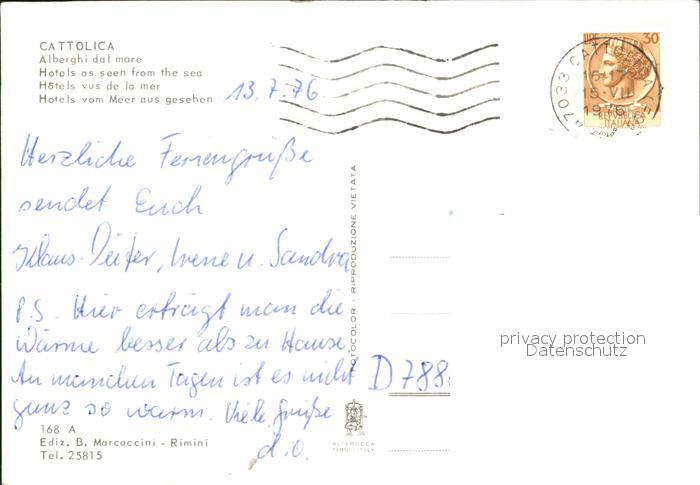 CATTOLICA
Alberghi dal mare
Hotels as seen from the sea
Hôtels vus de la mer
Hotels vom Meer aus gesehen
13.7.76
LIRE 30
47033 CATTOLICA
15.VII
1976
REPUBBLICA
ITALIANA
Herzliche Feriengrüße
sendet Euch
Klaus-Dieter, Irene u. Sandra
P.S. Hier erträgt man die
Wärme besser als zu Hause.
An manchen Tagen ist es nicht
ganz so warm. Viele Grüße
d.O.
FOTOCOLOR - RIPRODUZIONE VIETATA
D 788
privacy protection
Datenschutz
168 A
Ediz. B. Marcaccini - Rimini
Tel. 25815
ALTEROCCA
TERNI - ITALY